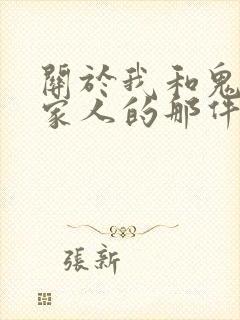 關於我和鬼
家人的那件
張新